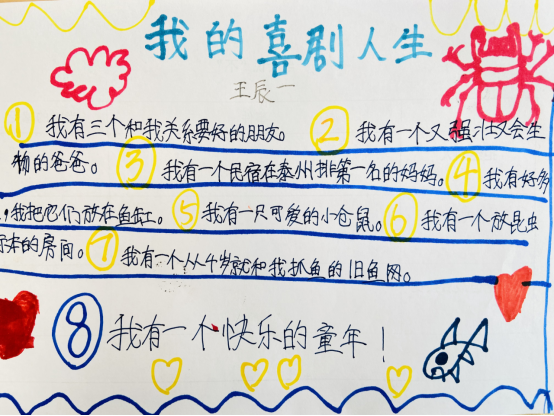 我的喜剧人生
王辰一
① 我有三个和我关系要好的朋友。 ② 我有一个又强壮又会生
物的爸爸。 ③ 我有一个民宿在泰州排第一名的妈妈。 ④ 我有好多
，我把它们放在鱼缸。 ⑤ 我有一只可爱的小仓鼠。 ⑥ 我有一个放昆虫
标本的房间。 ⑦ 我有一个从4岁就和我抓鱼的旧鱼网。
⑧ 我有一个快乐的童年！